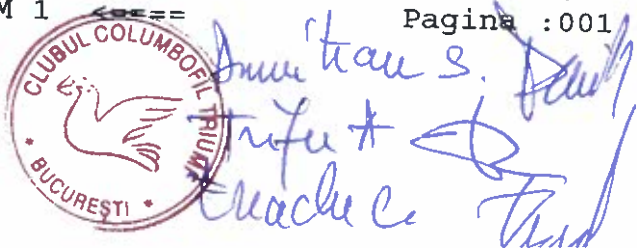 M 1 <==== Pagina :001
CLUBUL COLUMBOFIL TRIUMF
* BUCUREȘTI *
Dumitrau S.
Trifu A
Enache C